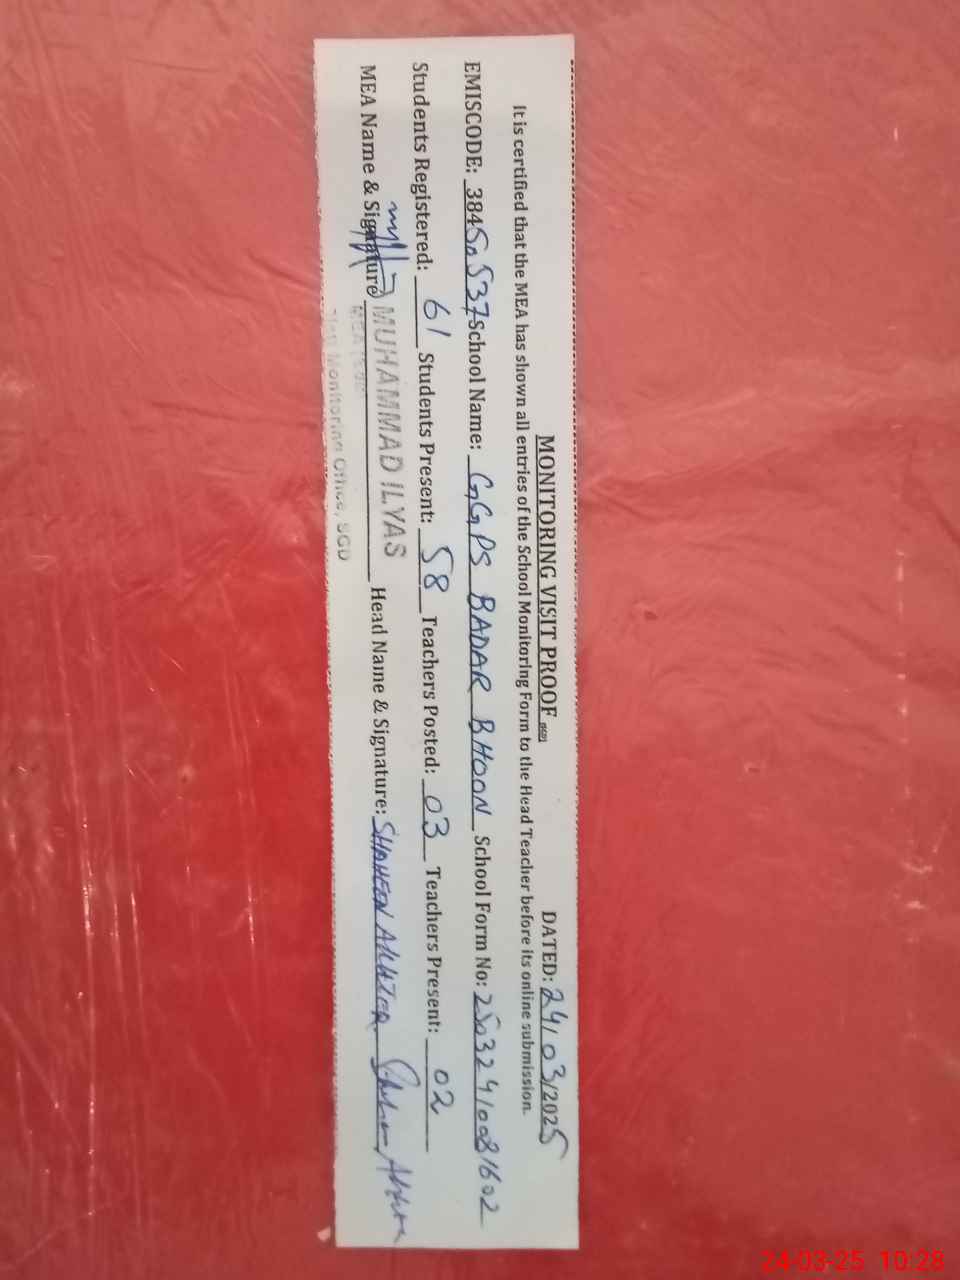 MONITORING VISIT PROOF DATED: 24/03/2025
It is certified that the MEA has shown all entries of the School Monitoring Form to the Head Teacher before its online submission.
EMISCODE: 38450537 School Name: GGPS BADAR BHOON School Form No: 25032410081602
Students Registered: 61 Students Present: 58 Teachers Posted: 03 Teachers Present: 02
MEA Name & Signature MUHAMMAD ILYAS Head Name & Signature: SHAHEEN AKHTER
MEA
Monitoring Office, SGD
24-03-25 10:28